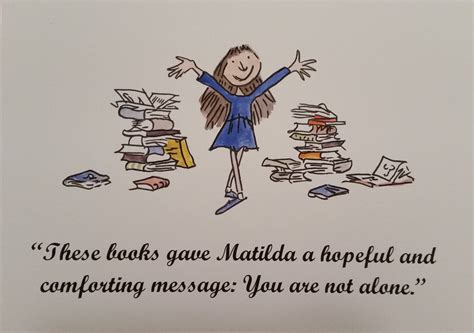 “These books gave Matilda a hopeful and
comforting message: You are not alone.”